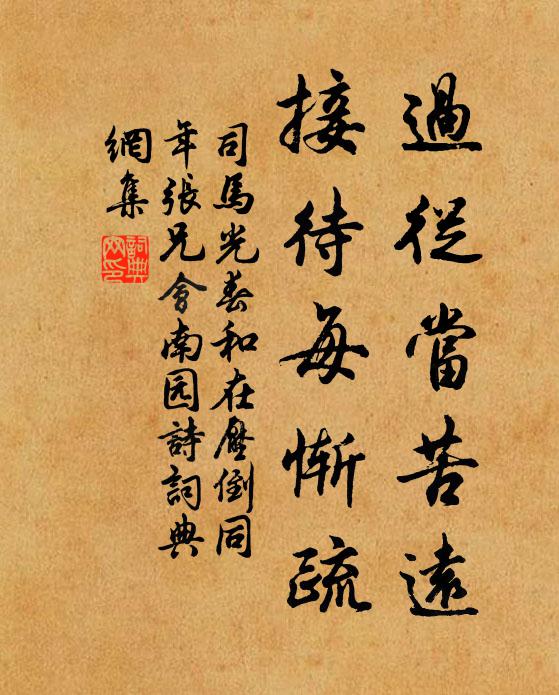 過從當苦遠
接待每慚疏
司馬光春和在壓倒同
年張兄會南园詩詞典
網集
詞典網印